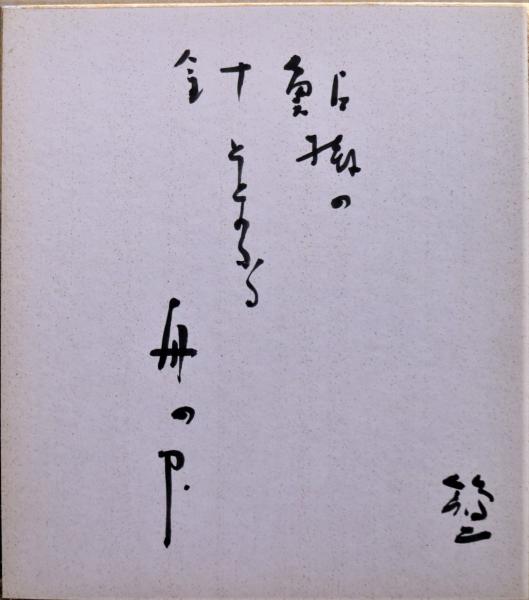 鮎掛の
針ととのふる
舟の中